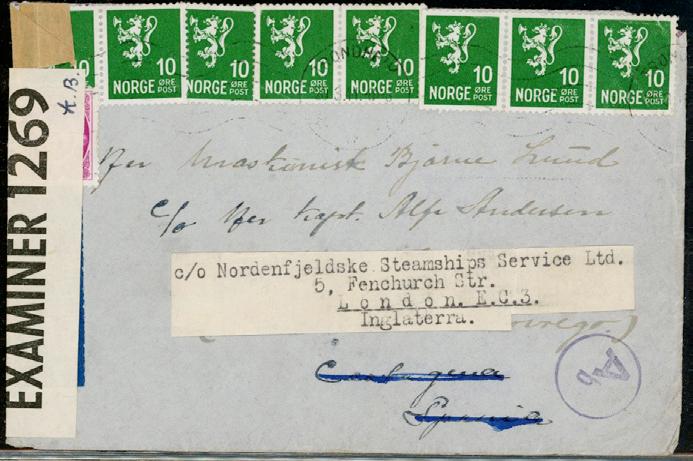 10 10 10 10 10 10 10 10
NORGE ØRE POST NORGE ØRE POST NORGE ØRE POST NORGE ØRE POST NORGE ØRE POST NORGE ØRE POST NORGE ØRE POST
A.B.
EXAMINER 1269
Herr Maskinist Bjarne Lund
c/o Herr Kapt. Alf Andersen
c/o Nordenfjeldske Steamships Service Ltd.
5, Fenchurch Str.
London. E.C.3.
Inglaterra.
Cartagena
Spania
Ab